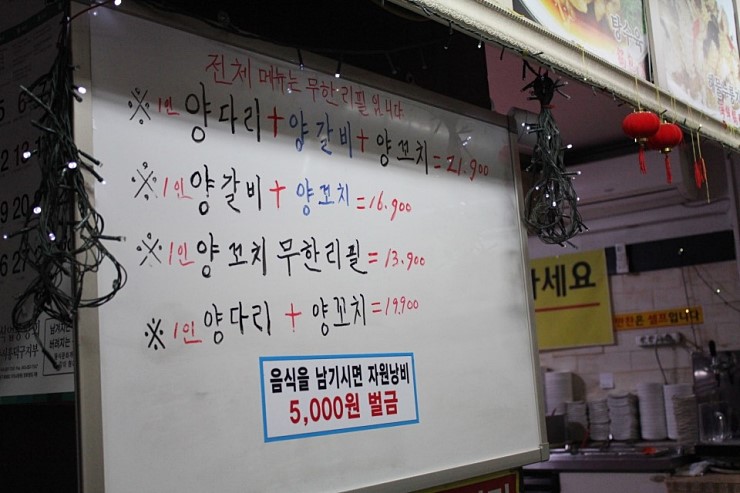 전체 메뉴는 무한리필 입니다
※ 1인 양다리+양갈비+양꼬치=21.900
※ 1인 양갈비+양꼬치=16.900
※ 1인 양꼬치 무한리필=13.900
※ 1인 양다리+양꼬치=19.900
음식을 남기시면 자원낭비
5,000원 벌금
하세요
반찬은 셀프입니다
탕수육